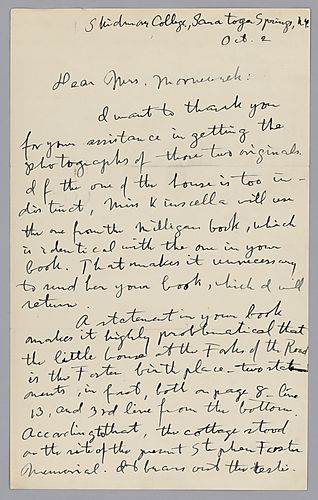 Skidmore College, Saratoga Springs, N.Y.
Oct. 2
Dear Mrs. Morneweck:
I want to thank you
for your assistance in getting the
photographs of those two originals.
If the one of the house is too in-
distinct, Miss Kinscella will use
the one from the Milligan book, which
is identical with the one in your
book. That makes it unnecessary
to send her your book, which I will
return.
A statement in your book
makes it highly problematical that
the little house at the Forks of the Road
is the Foster birthplace - two state
ments, in fact, both on page 8 - line
13, and 3rd line from the bottom.
According to that, the cottage stood
on the site of the present Stephen Foster
Memorial. It bears out the testi-